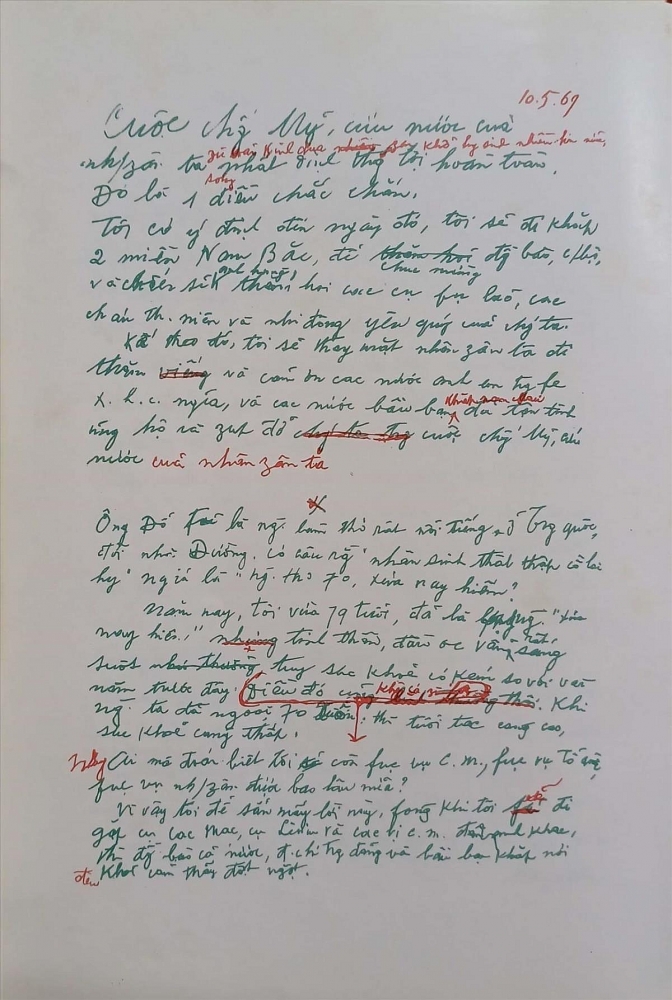 10.5.69
Cuộc chg Mỹ, cứu nước của
zù fải kinh qua khổ hy sinh nhiều hơn nữa,
nh/zân ta nhất định thg lợi hoàn toàn.
Đó là 1 điều chắc chắn.
Tôi có ý định đến ngày đó, tôi sẽ đi khắp
2 miền Nam Bắc, để thăm hỏi đg bào,
chúc mừng
và chiến sĩ anh hùng, thăm hỏi các cụ fụ lão, các
cháu th. niên và nhi đồng yêu quý của chg ta.
Kế theo đó, tôi sẽ thay mặt nhân zân ta đi
thăm viếng và cám ơn các nước anh em trg fe
x. h. c. nghĩa, và các nước bầu bạn khắp năm châu đã tận tình
ủng hộ và zúp đỡ cuộc chg Mỹ, cứu
nước của nhân zân ta
x
Ông Đỗ Fủ là ng. làm thơ rất nổi tiếng ở Trg quốc,
đời nhà Đường. Có câu rằg "nhân sinh thất thập cổ lai
hy" nghĩa là "ng. thọ 70, xưa nay hiếm"
Năm nay, tôi vừa 79 tuổi, đã là "xưa
nay hiếm" tinh thần, đầu óc vẫn rất sáng
suốt tuy sức khoẻ có kém so với vài
năm trước đây. Điều đó cũg không có gì lạ. Khi
ng. ta đã ngoài 70 xuân, thì tuổi tác càng cao,
sức khoẻ càng thấp.
Nhưg Ai mà đoán biết tôi còn fục vụ C.M., fục vụ Tổ quốc,
fục vụ nh/zân được bao lâu nữa?
Vì vậy tôi để sẵn mấy lời này, fòng khi tôi sẽ đi
gặp cụ Các Mác, cụ Lênin và các vị c.m. đàn anh khác,
thì đg bào cả nước, đ.chí trg đảng và bầu bạn khắp nơi
đều khỏi cảm thấy đột ngột.